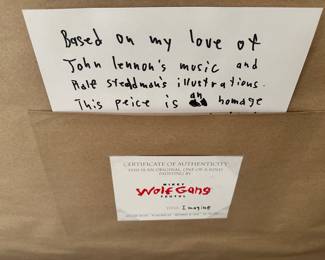 Based on my love of
John lennon's music and
Ralf steadman's illustrations.
This peice is an homage
CERTIFICATE OF AUTHENTICITY
THIS IS AN ORIGINAL, ONE OF A KIND
PAINTING BY
WOLFGANG
TITLE Imagine